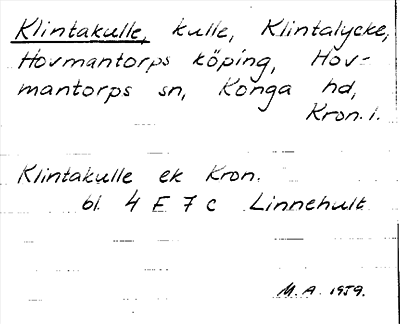 Klintakulle, kulle, Klintalycke,
Hovmantorps köping, Hov-
mantorps sn, Konga hd,
Kron. l.
Klintakulle ek Kron.
bl. 4 E 7 c Linnehult
M. A. 1959.